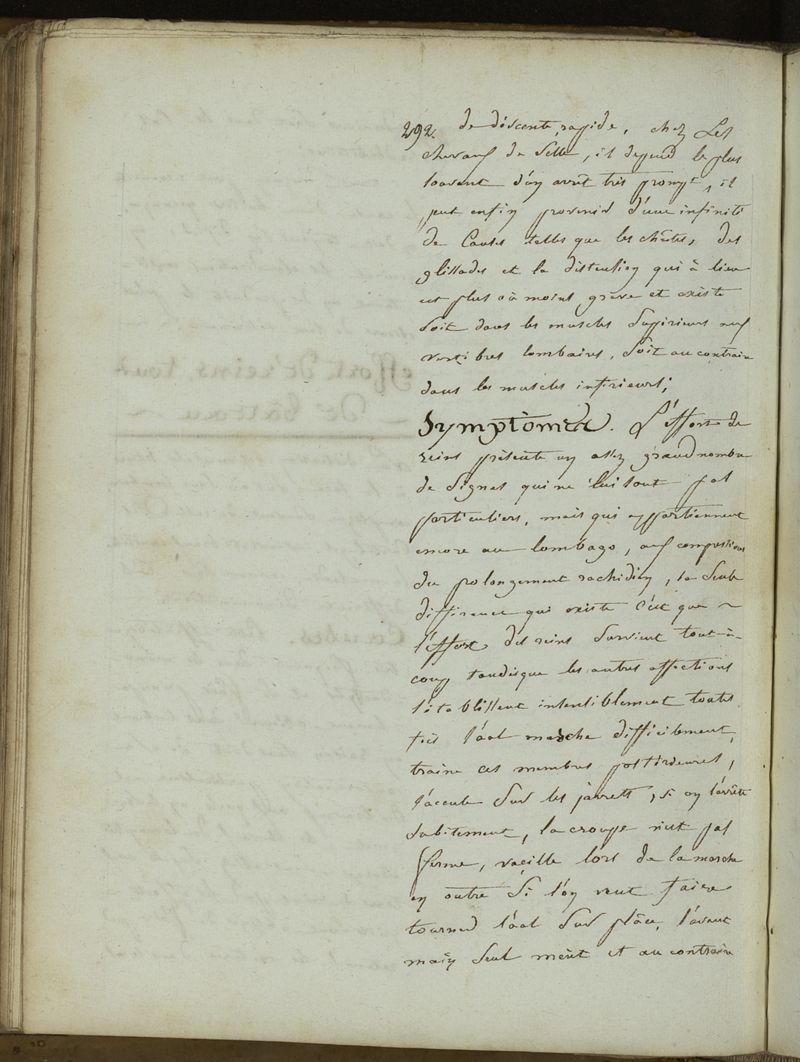 292. de déscente rapide, chez Les
chevaux de Selle, il depend le plus
souvent d'un arrêt très prompt, il
peut enfin provenir d'une infinité
de Causes telles que les chûtes, des
glissades et la distention qui à lieu
est plus où moins grave et existe
soit dans les muscles Supérieurs aux
vertèbres lombaires, soit au contraire
dans les muscles inférieurs;
Symptômes. L'effort de
reins présente un assez grand nombre
de Signes qui ne lui sont pas
particuliers, mais qui appartiennent
encore au lombago, aux compressions
du prolongement rachidien, la Seule
différence qui existe c'est que ~
l'effort des reins Survient tout-à-
coup tandisque les autres affections
s'établissent insensiblement toutes
fois l'aal marche difficilement,
traine ces membres postérieures,
s'accule Sur les jarrets, si on l'arrête
subitement, la croupe n'est pas
ferme, vacille lors de la marche
en outre Si l'on veut faire
tourner l'aal Sur place, l'avant
main Seul meut et au contraire